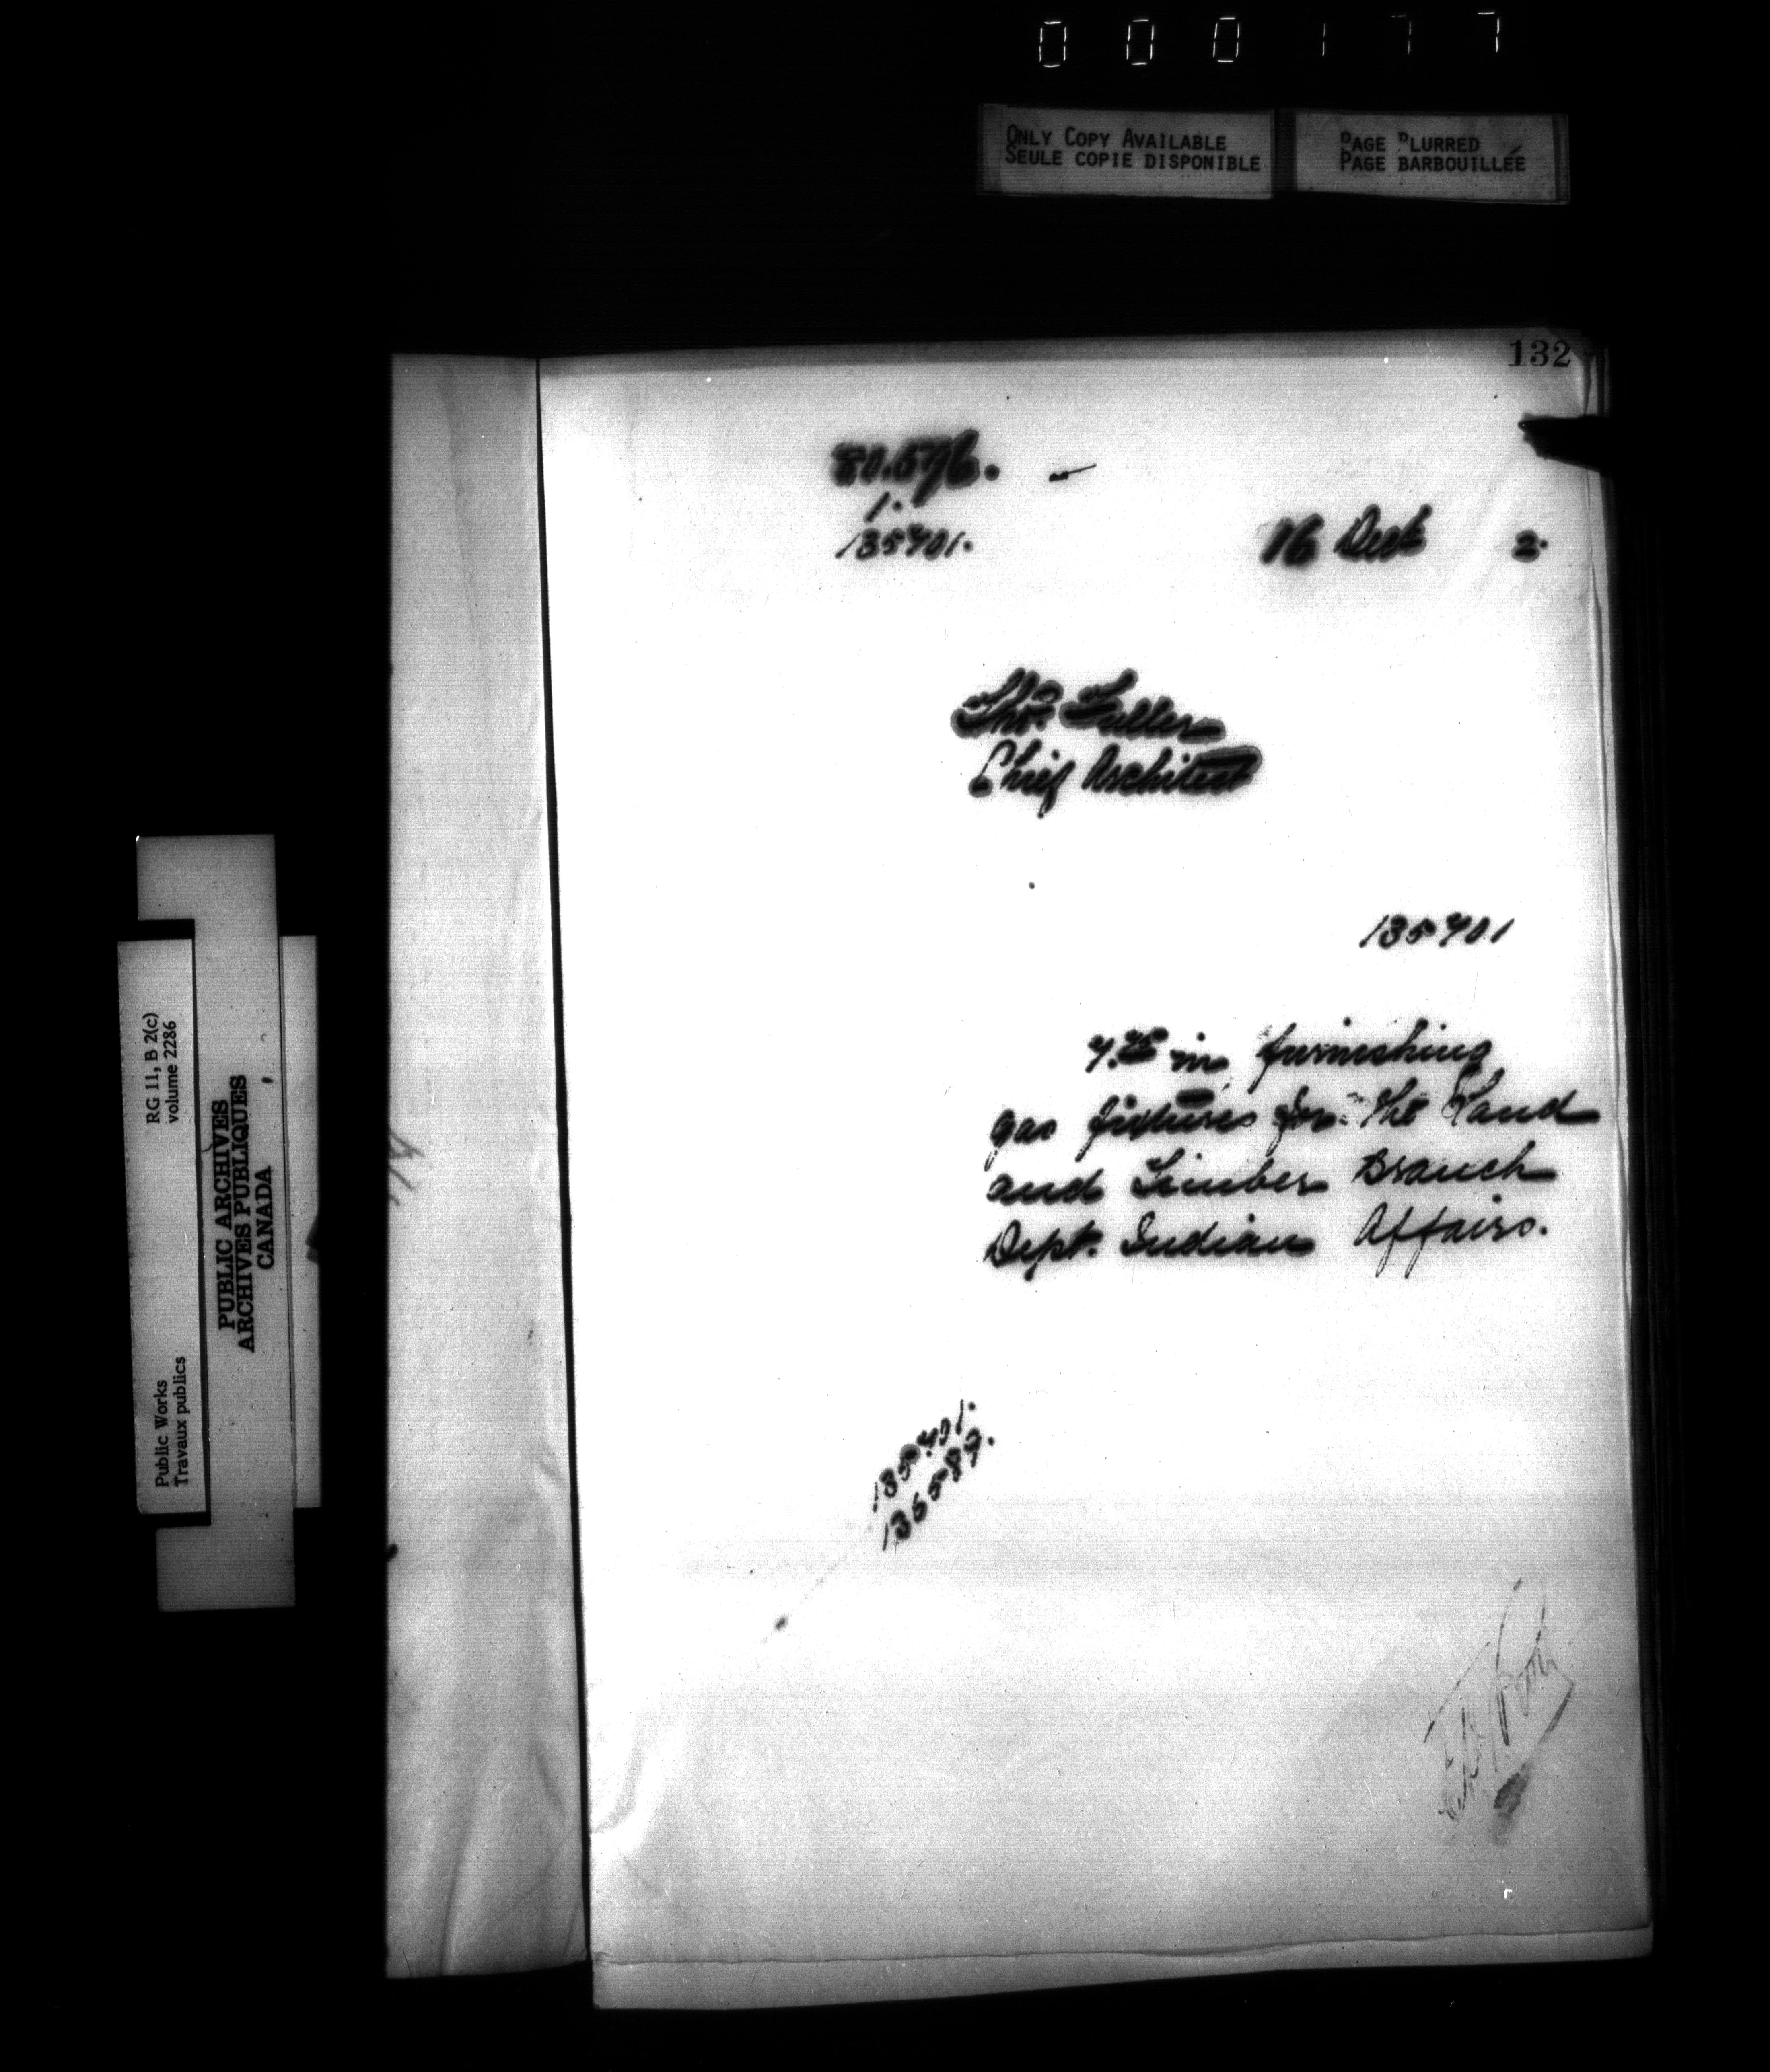 000177
ONLY COPY AVAILABLE
SEULE COPIE DISPONIBLE
PAGE BLURRED
PAGE BARBOUILLÉE
132
80.576.
1.
135701.
16 Dect 2.
Thos. Fuller
Chief Architect
135701
in furnishing
gas fixtures for the Land
and Timber Branch
Dept. Indian Affairs.
135701.
136589.
RG 11, B 2(c)
volume 2286
Public Works
Travaux publics
PUBLIC ARCHIVES
ARCHIVES PUBLIQUES
CANADA